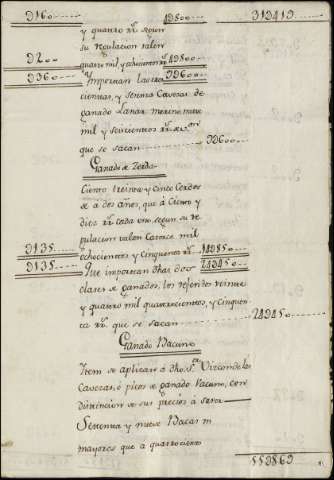 9160 48000 313419
y quatro rr.s segun
su regulacion valen
9200 quatro mil y ochocientos rr.s 4800
9360 Importan las tres- 9600
cientas, y setenta Cavezas de
ganado Lanar merino, nueve
mil y seiscientos rr.s vn.
que se sacan 9600
Ganado de Zerda
Ciento treinta y cinco Cerdos
de a dos años, que á Ciento y
diez rr.s cada uno, segun su re-
gulacion valen Catorce mil
9135 ochocientos y cinquenta rr.s 14850
9135 Que importan dhas dos 24450
clases de ganados, los referidos veinte
y quatro mil quatrocientos, y cinquen-
ta rr.s que se sacan 24450
Ganado Bacuno
Item se aplican á dho S.r Vizconde las
Cavezas, ó piezas de ganado Vacuno, con
distincion de sus precios á saver
Setenta y nueve Bacas
mayores que a quatrocientos